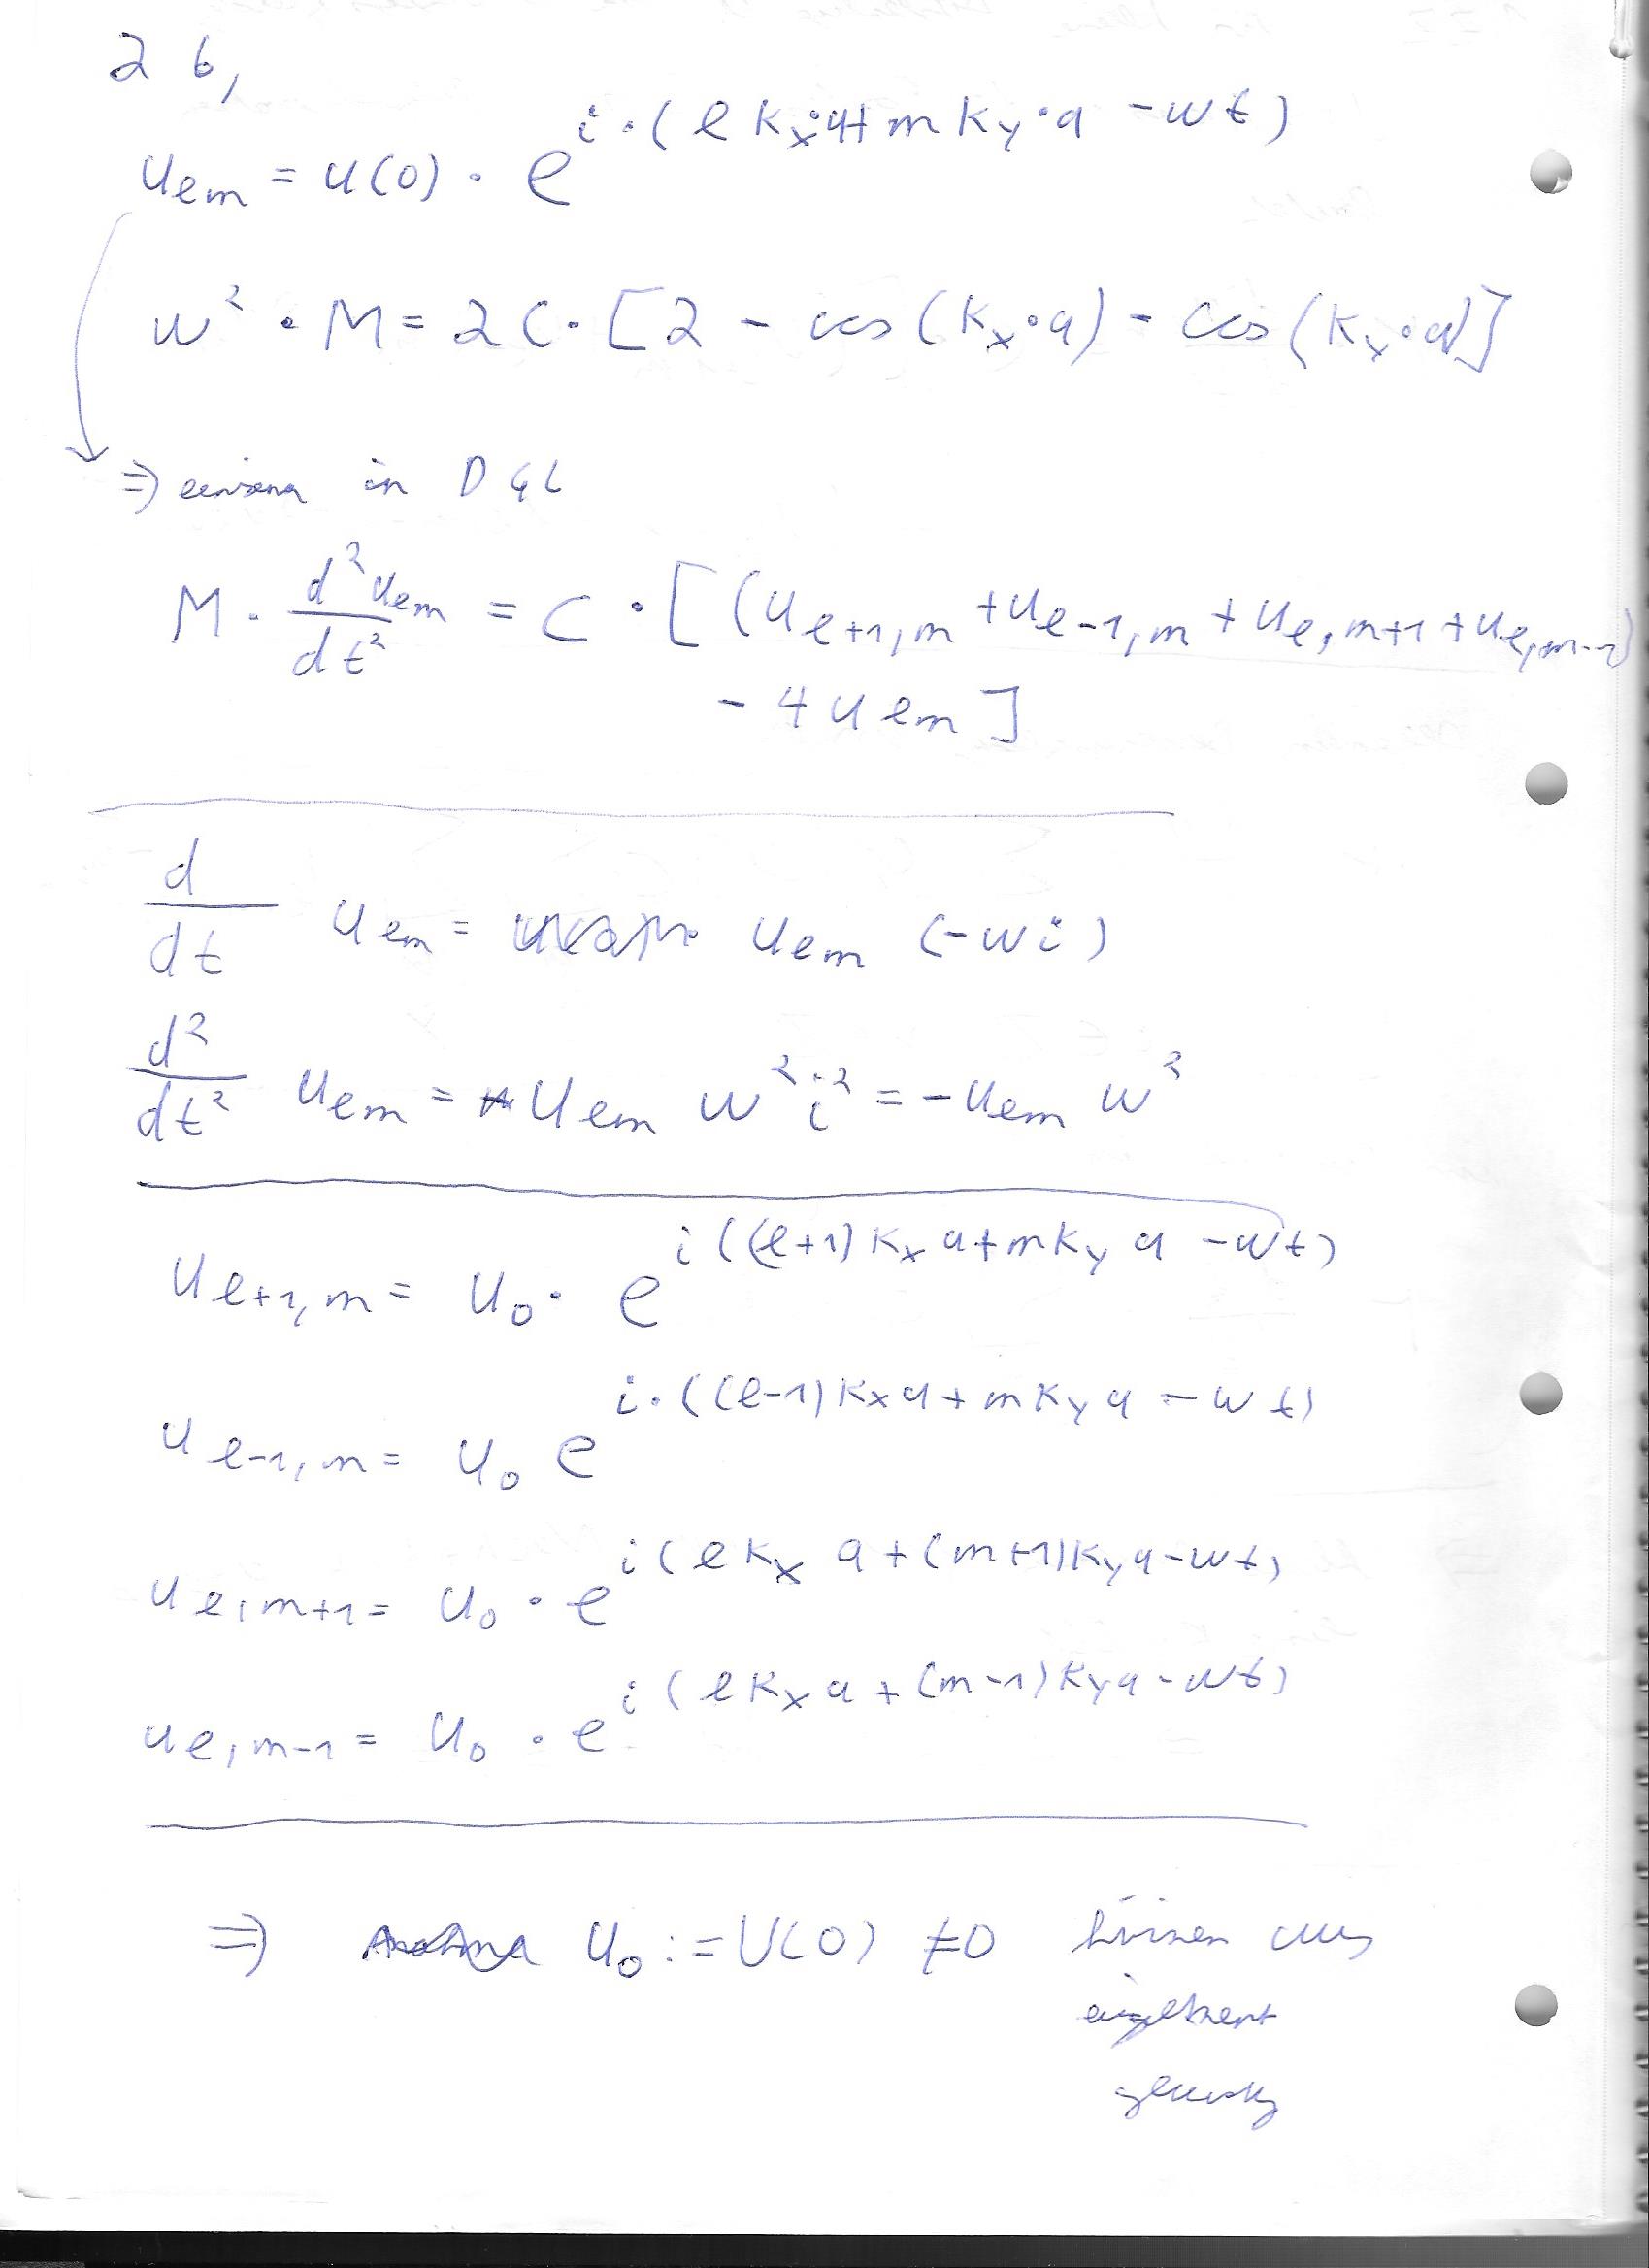 2 b,
u_lm = u(0) · e^{i·(l k_x·a + m k_y·a - wt)}
w² · M = 2C·[2 - cos(k_x·a) - cos(k_y·a)]
⇒ in DGL
M · d²u_lm/dt² = C · [(u_{l+1,m} + u_{l-1,m} + u_{l,m+1} + u_{l,m-1})
- 4 u_lm]
d/dt u_lm = u_lm (-wi)
d²/dt² u_lm = u_lm w² i² = -u_lm w²
u_{l+1,m} = u_0 · e^{i((l+1)k_x a + m k_y a - wt)}
u_{l-1,m} = u_0 e^{i·((l-1)k_x a + m k_y a - wt)}
u_{l,m+1} = u_0 · e^{i(l k_x a + (m+1)k_y a - wt)}
u_{l,m-1} = u_0 · e^{i(l k_x a + (m-1)k_y a - wt)}
⇒ u_0 := U(0) ≠ 0 aus